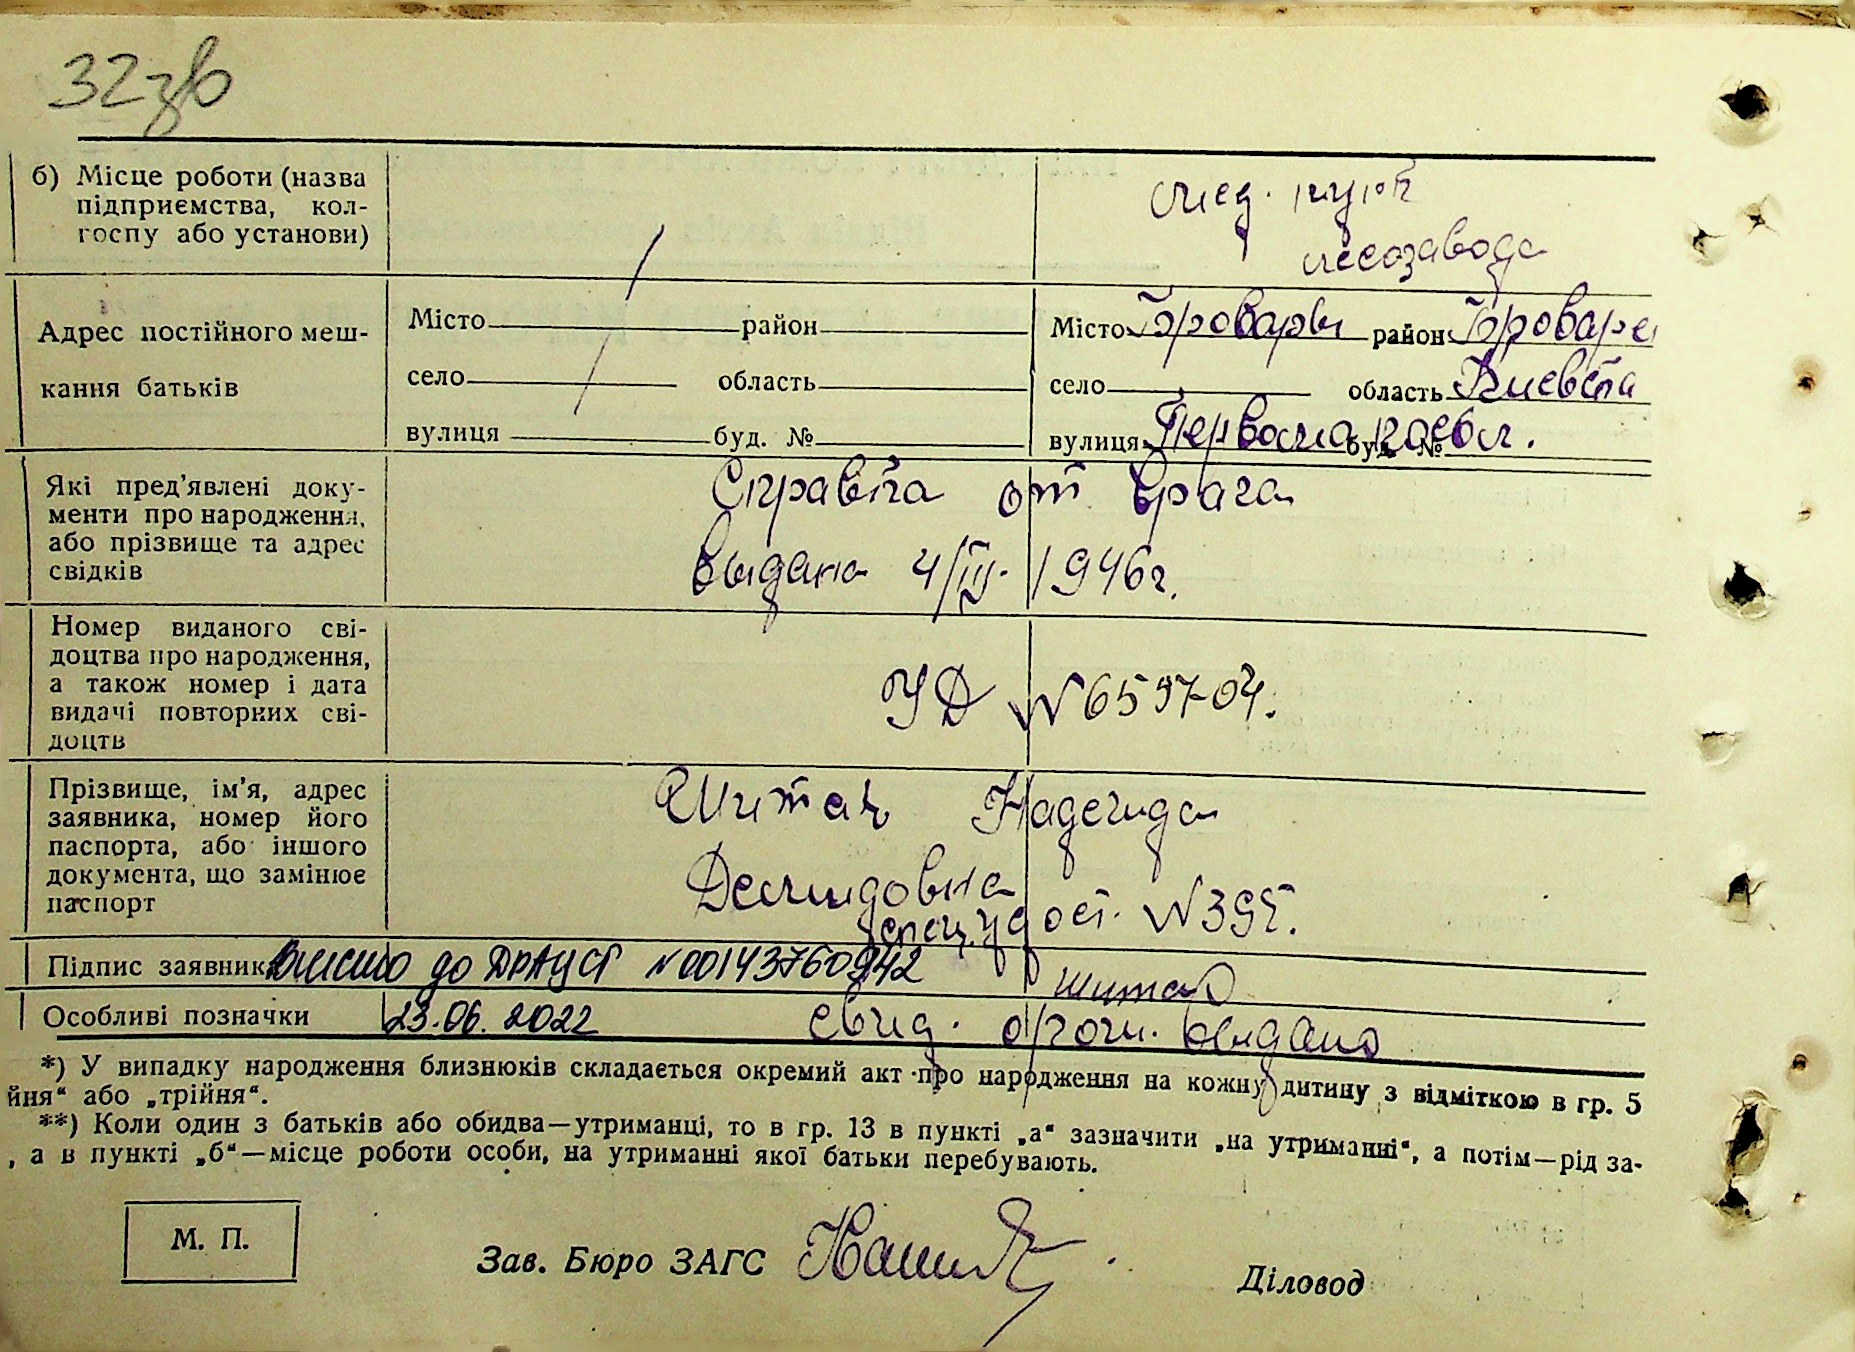 32зв
б) Місце роботи (назва
підприємства, кол-
госпу або установи)
мед. пункт
лесозавода
Адрес постійного меш-
кання батьків
Місто район
село область
вулиця буд. №
Місто Бровары район Бровар
село область Киевска
вулиця Первомай буд. №
Які пред'явлені доку-
менти про народження,
або прізвище та адрес
свідків
Справка от врача
выдана 4/III. 1946г.
Номер виданого сві-
доцтва про народження,
а також номер і дата
видачі повторних сві-
доцтв
УД № 659704.
Прізвище, ім'я, адрес
заявника, номер його
паспорта, або іншого
документа, що замінює
паспорт
Шитак Надежда
Демидовна
спец. удост. № 395.
Підпис заявник Внесено до ДРАЦСГ №00143760942
Шитак
Особливі позначки 23.06.2022 свид. выдано
*) У випадку народження близнюків складається окремий акт про народження на кожну дитину з відміткою в гр. 5
йня“ або „трійня“.
**) Коли один з батьків або обидва—утриманці, то в гр. 13 в пункті „а“ зазначити „на утриманні“, а потім—рід за-
, а в пункті „б“—місце роботи особи, на утриманні якої батьки перебувають.
М. П.
Зав. Бюро ЗАГС
Діловод